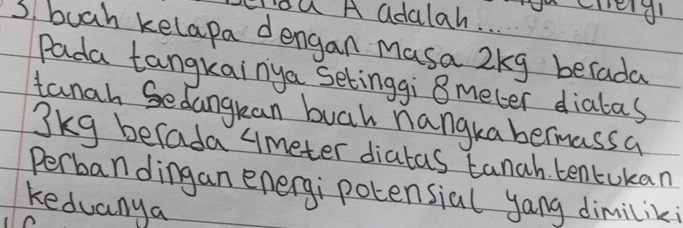 A adalah....
3. buah kelapa dengan Masa 2kg berada
Pada tangkainya Setinggi 8 meter diatas
tanah Sedangkan buah nangka bermassa
3kg berada 4meter diatas tanah. tentukan
Perbandingan energi potensial yang dimiliki
keduanya